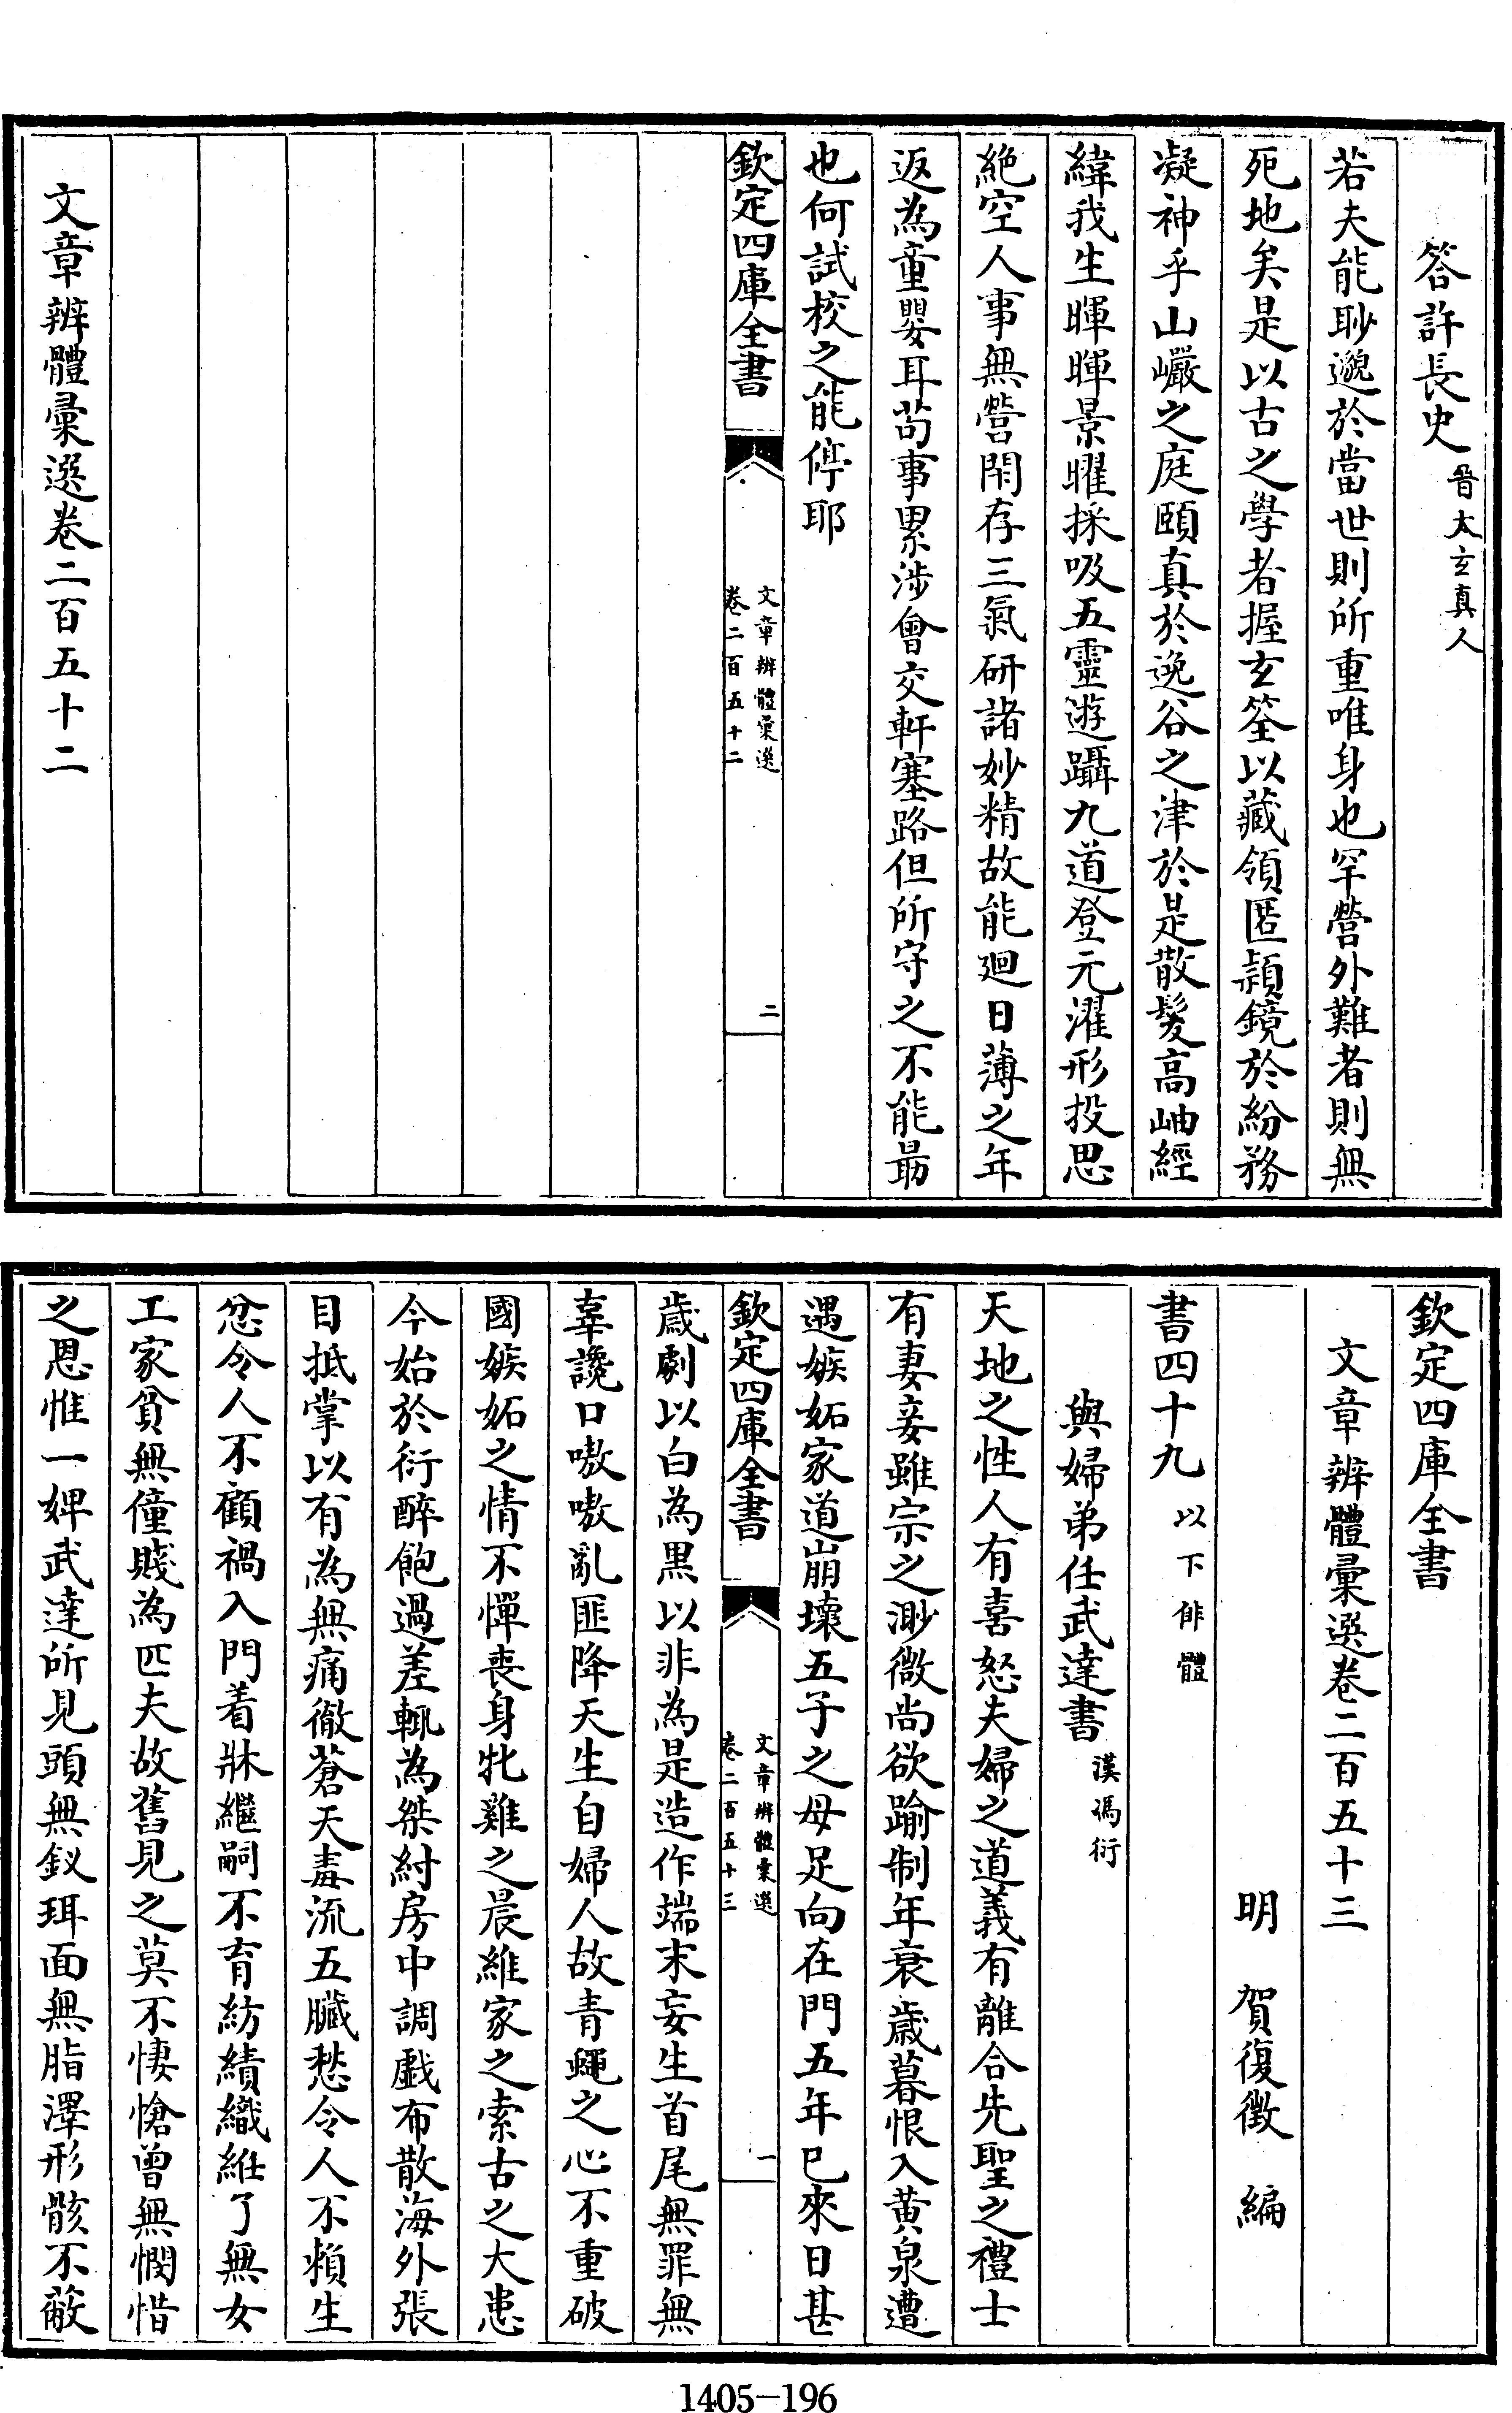 答許長史晉太玄真人
若夫能眇邈於當世則所重唯身也罕營外難者則無
死地矣是以古之學者握玄筌以藏領匿穎鏡於紛務
凝神乎山巖之庭頤真於逸谷之津於是散髮高岫經
緯我生暉暉景曜採吸五靈遊躡九道登元濯形投思
絶空人事無營閑存三氣研諸妙精故能廻日薄之年
返為童嬰耳苟事累涉會交軒塞路但所守之不能最
也何試校之能停耶
欽定四庫全書
文章辨體彙選
卷二百五十二
二
文章辨體彙選卷二百五十二
欽定四庫全書
文章辨體彙選卷二百五十三
明 賀復徵 編
書四十九以下俳體
與婦弟任武達書漢馮衍
天地之性人有喜怒夫婦之道義有離合先聖之禮士
有妻妾雖宗之渺微尚欲踰制年衰歲暮恨入黃泉遭
遇嫉妬家道崩壞五子之母足向在門五年已來日甚
歲劇以白為黑以非為是造作端末妄生首尾無罪無
辜讒口嗷嗷亂匪降天生自婦人故青蠅之心不重破
國嫉妬之情不憚喪身牝雞之晨維家之索古之大患
今始於衍醉飽過差輒為桀紂房中調戲布散海外張
目抵掌以有為無痛徹蒼天毒流五臟愁令人不賴生
忿令人不顧禍入門着牀繼嗣不育紡績織紝了無女
工家貧無僮賤為匹夫故舊見之莫不悽愴曾無憫惜
之恩惟一婢武達所見頭無釵珥面無脂澤形骸不蔽
欽定四庫全書
文章辨體彙選
卷二百五十三
一
1405-196